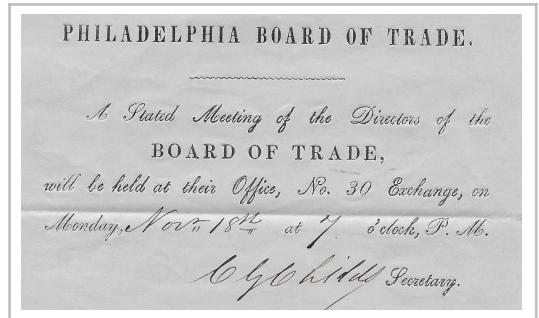 PHILADELPHIA BOARD OF TRADE.
A Stated Meeting of the Directors of the
BOARD OF TRADE,
will be held at their Office, No. 30 Exchange, on
Monday, Nov. 18th at 7 o'clock, P. M.
C G Childs Secretary.